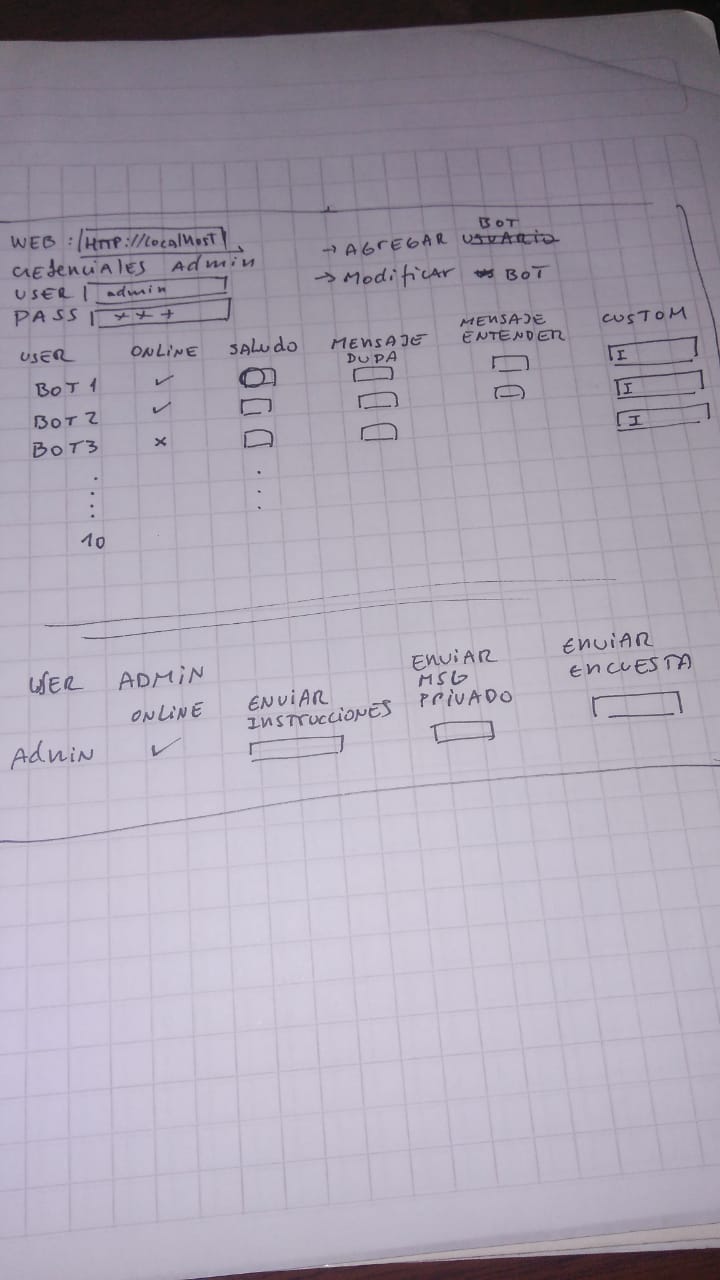 WEB : HTTP://localhost
credenciales Admin
USER admin
PASS ***
→ AGREGAR USUARIO BOT
→ Modificar BOT
USER ONLINE SALUDO MENSAJE DUPA MENSAJE ENTENDER CUSTOM
BOT 1 ✓ I
BOT 2 ✓ I
BOT3 x I
10
USER ADMIN
ONLINE ENVIAR INSTRUCCIONES ENVIAR MSG PRIVADO ENVIAR ENCUESTA
Admin ✓